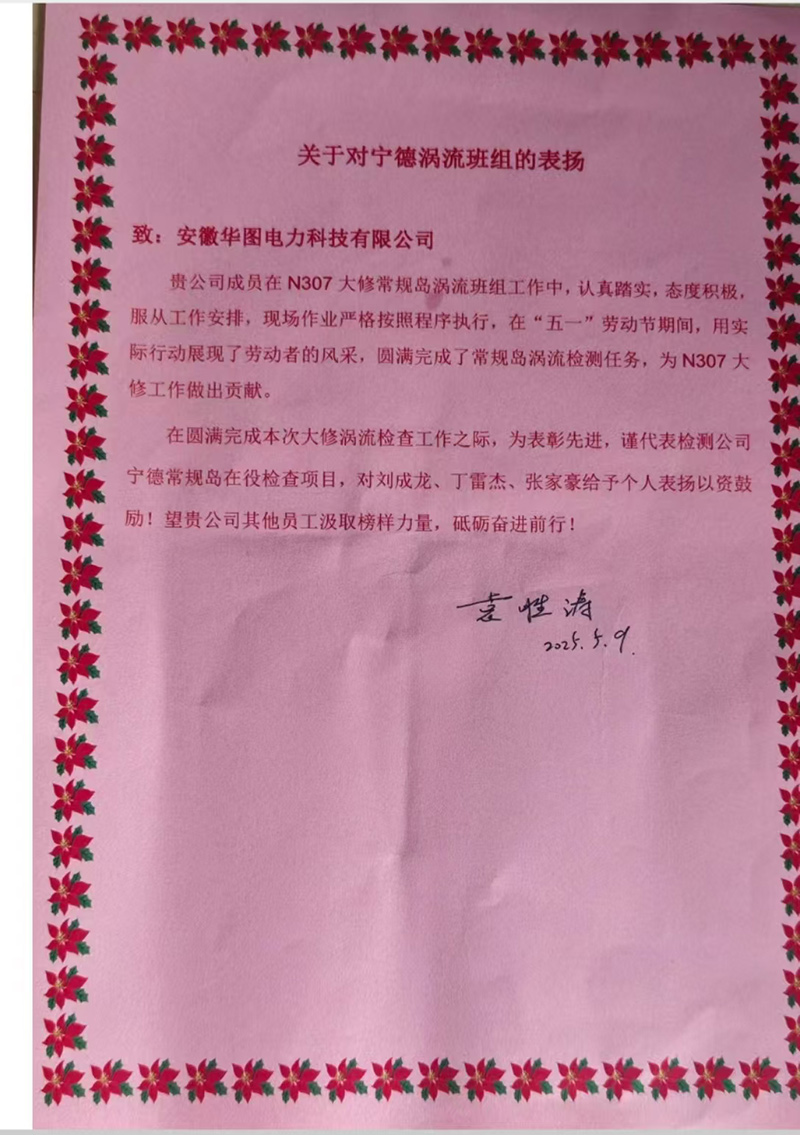 关于对宁德涡流班组的表扬
致：安徽华图电力科技有限公司
贵公司成员在N307大修常规岛涡流班组工作中，认真踏实，态度积极，
服从工作安排，现场作业严格按照程序执行，在“五一”劳动节期间，用实
际行动展现了劳动者的风采，圆满完成了常规岛涡流检测任务，为N307大
修工作做出贡献。
在圆满完成本次大修涡流检查工作之际，为表彰先进，谨代表检测公司
宁德常规岛在役检查项目，对刘成龙、丁雷杰、张家豪给予个人表扬以资鼓
励！望贵公司其他员工汲取榜样力量，砥砺奋进前行！
2025.5.9.